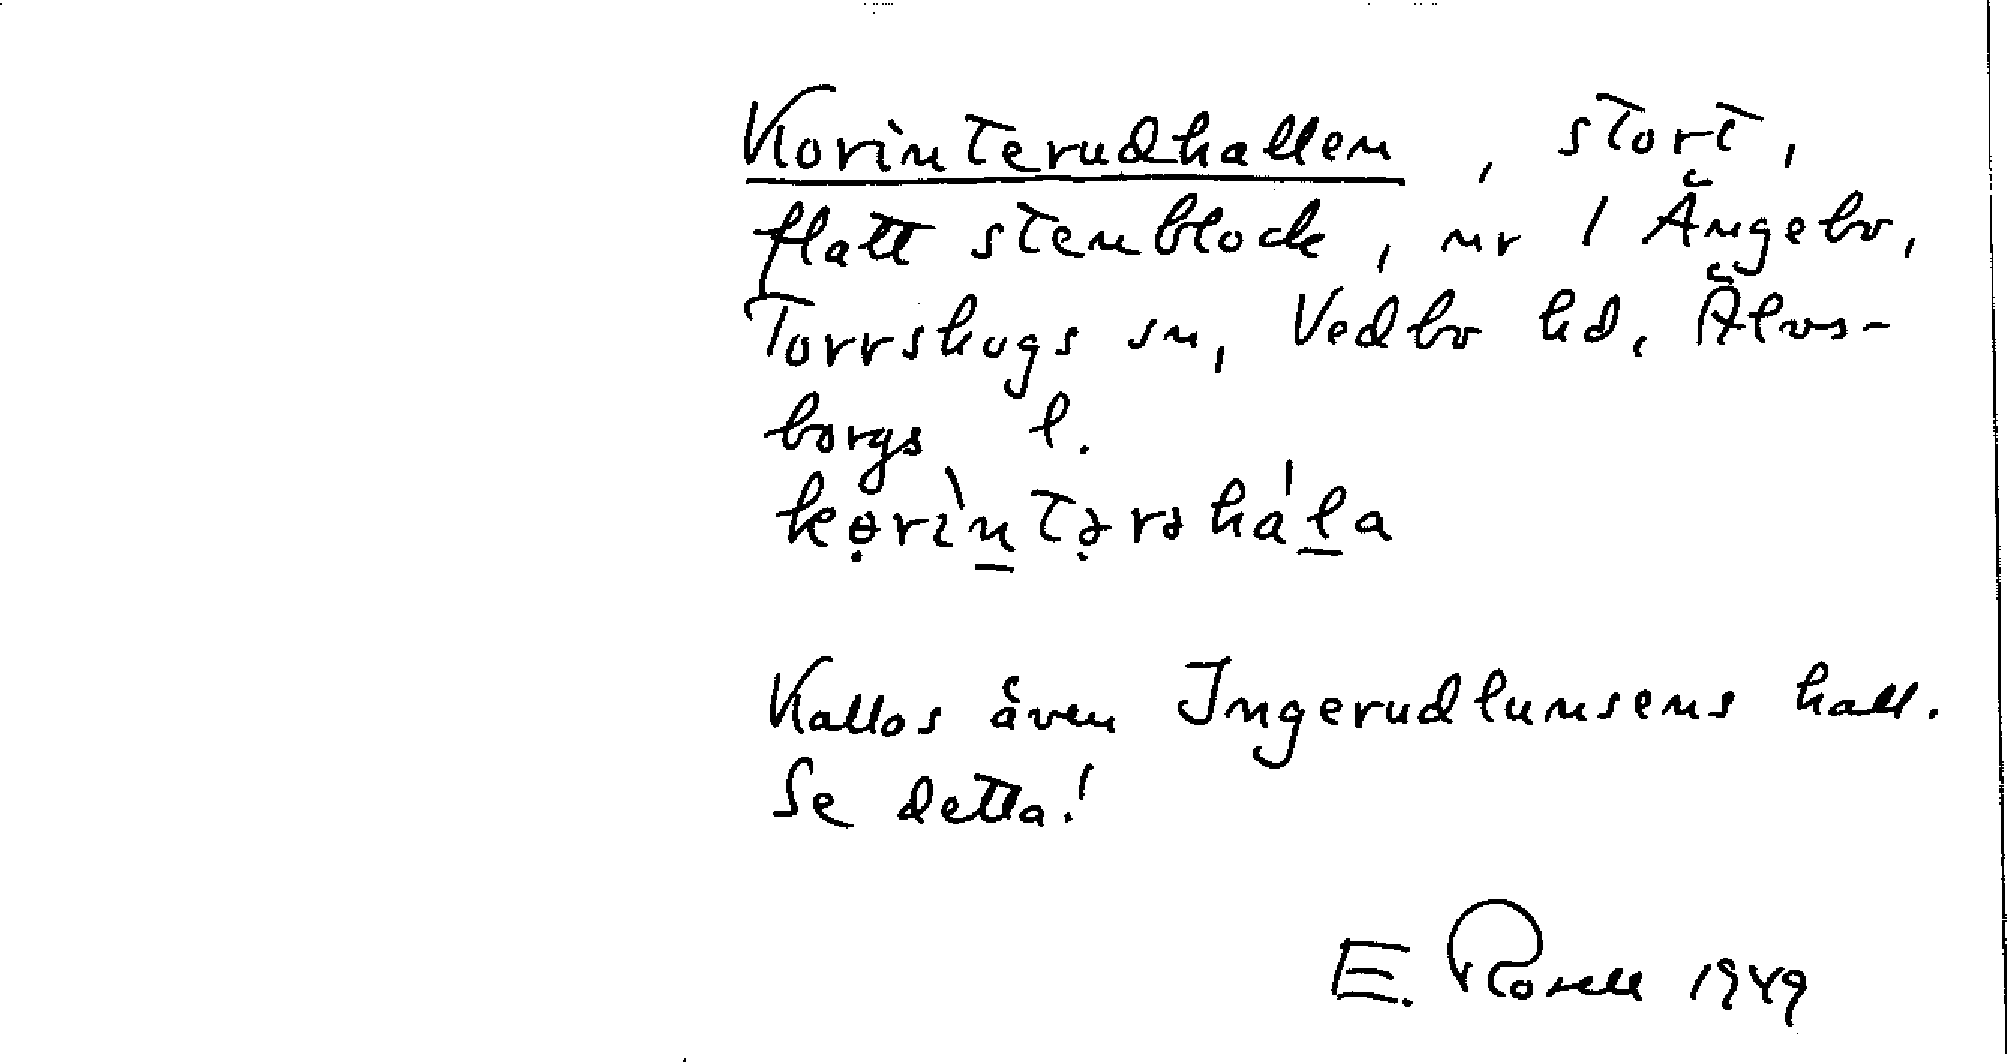 Korinterudhallen, stort,
flatt stenblock, nr 1 Ängebo,
Torrskogs sn, Vedbo hd, Älvs-
borgs l.
Kallas även Ingerudlunsens hall.
Se detta!
E. Rosell 1949